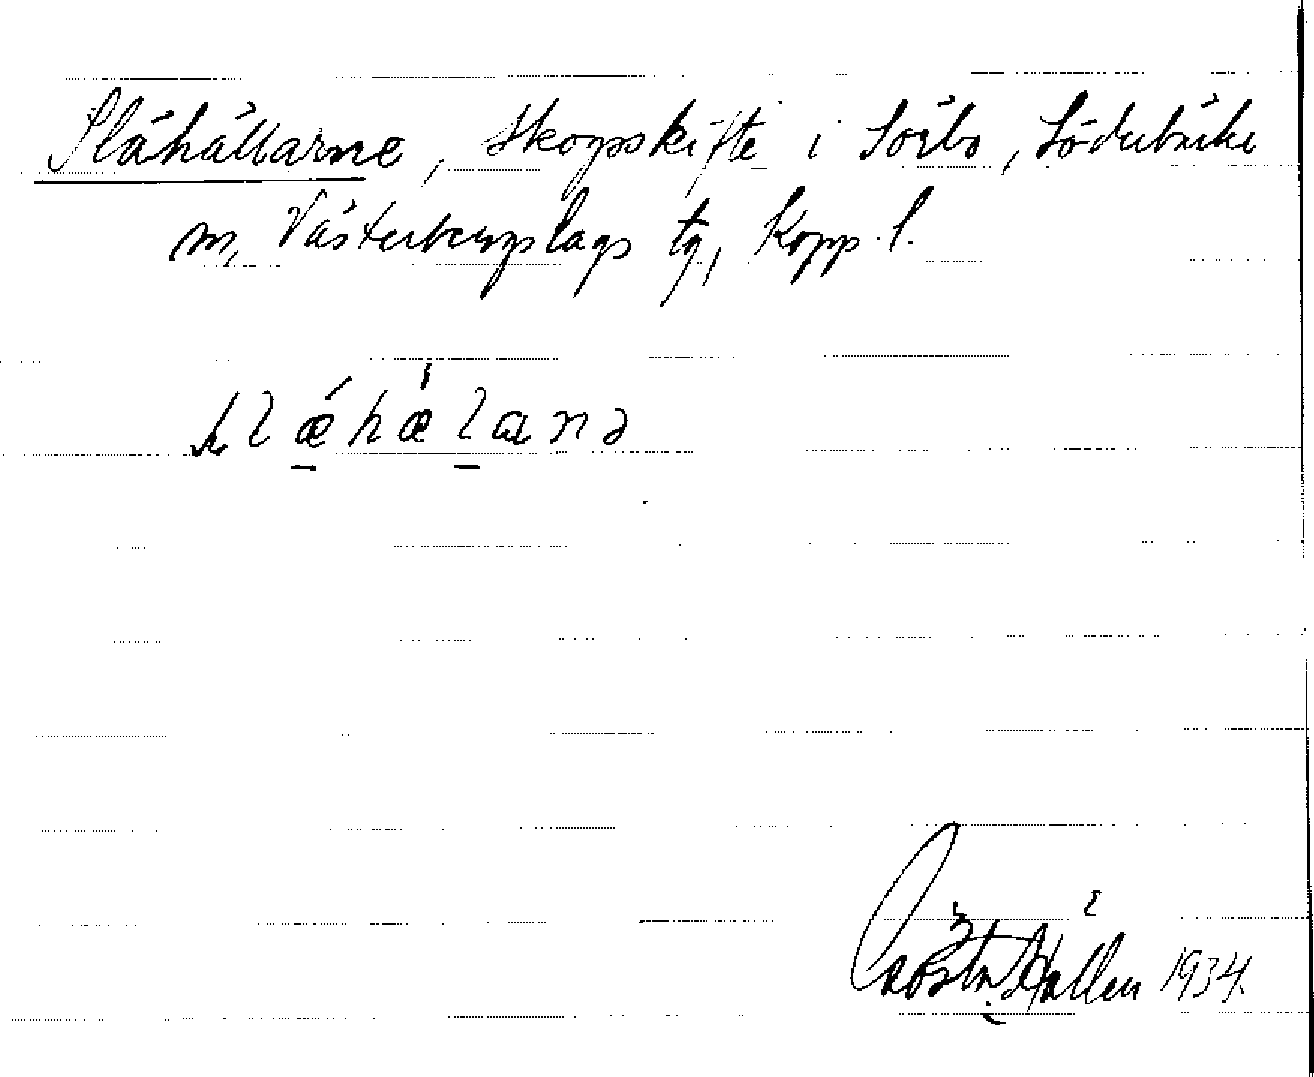 Slåhällarne, skogsskifte i Sörbo, Söderbärke
m, Västerbergslags tg, Kopp. l.
slǽ̲hæ̍l̲anə
Gösta Hallén 1934.